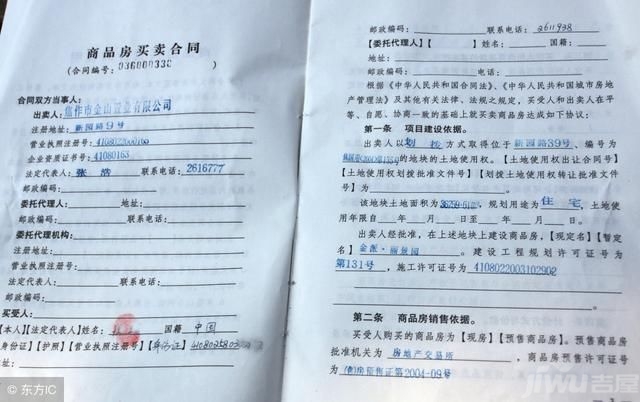 商品房买卖合同
(合同编号:036000330)
合同双方当事人:
出卖人:焦作市金山置业有限公司
注册地址:新园路9号
营业执照注册号:4108022000165
企业资质证书号:41080163
法定代表人:张浩 联系电话:2616777
邮政编码:
委托代理人: 地址:
邮政编码: 联系电话:
委托代理机构:
注册地址:
营业执照注册号:
法定代表人: 联系电话:
邮政编码:
买受人:
【本人】【法定代表人】姓名: 国籍 中国
身份证】【护照】【营业执照注册号】【身份证】
地址:
邮政编码: 联系电话:2611938
【委托代理人】【 】姓名: 国籍:
地址:
邮政编码: 电话:
根据《中华人民共和国合同法》、《中华人民共和国城市房地
产管理法》及其他有关法律、法规之规定,买受人和出卖人在平
等、自愿、协商一致的基础上就买卖商品房达成如下协议:
第一条 项目建设依据。
出卖人以划拨方式取得位于新园路39号、编号为
的地块的土地使用权。【土地使用权出让合同号】
【土地使用权划拨批准文件号】【划拨土地使用权转让批准文件
号】为
该地块土地面积为,规划用途为住宅,土地使
用年限自 年 月 日至 年 月 日。
出卖人经批准,在上述地块上建设商品房,【现定名】【暂定
名】金派·丽景园。建设工程规划许可证号为
第131号,施工许可证号为4108022003102902
第二条 商品房销售依据。
买受人购买的商品房为【现房】【预售商品房】。预售商品房
批准机关为房地产交易所,商品房预售许可证号
为(售)房预售证第2004-09号
© 东方IC
jiwu吉屋